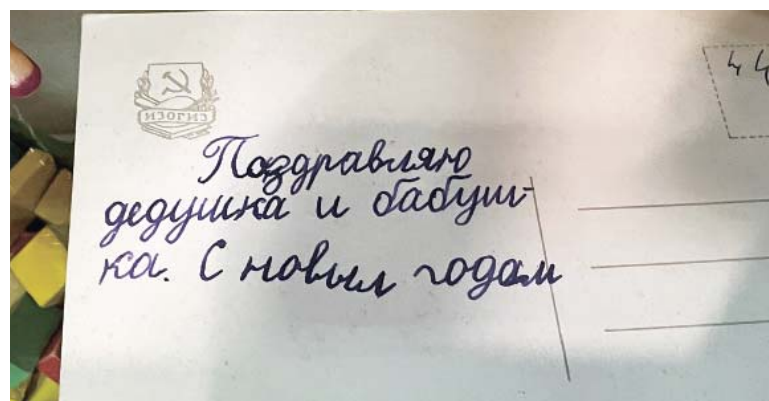 ИЗОГИЗ
Поздравляю
дедушка и бабуш-
ка. С новым годом